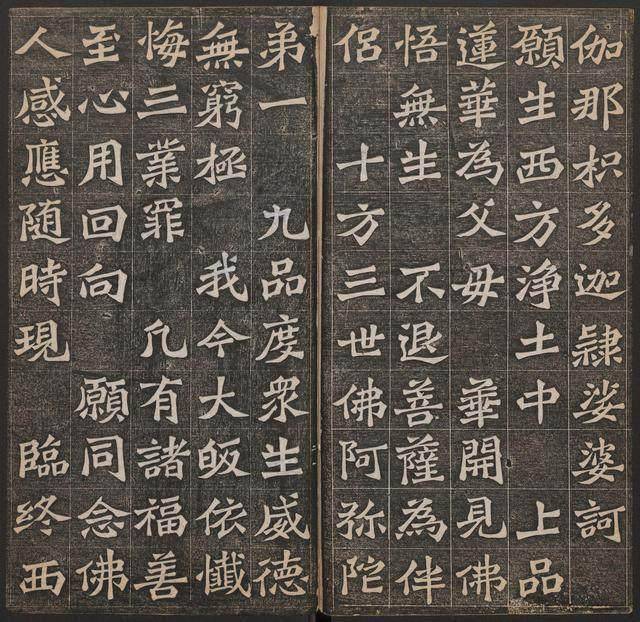 伽那枳多迦隸娑婆訶
願生西方淨土中 上品
蓮華為父母 華開見佛
悟無生 不退菩薩為伴
侶 十方三世佛阿弥陀
弟一 九品度衆生威德
無窮極 我今大皈依懺
悔三業罪 凡有諸福善
至心用回向 願同念佛
人感應随時現 臨終西